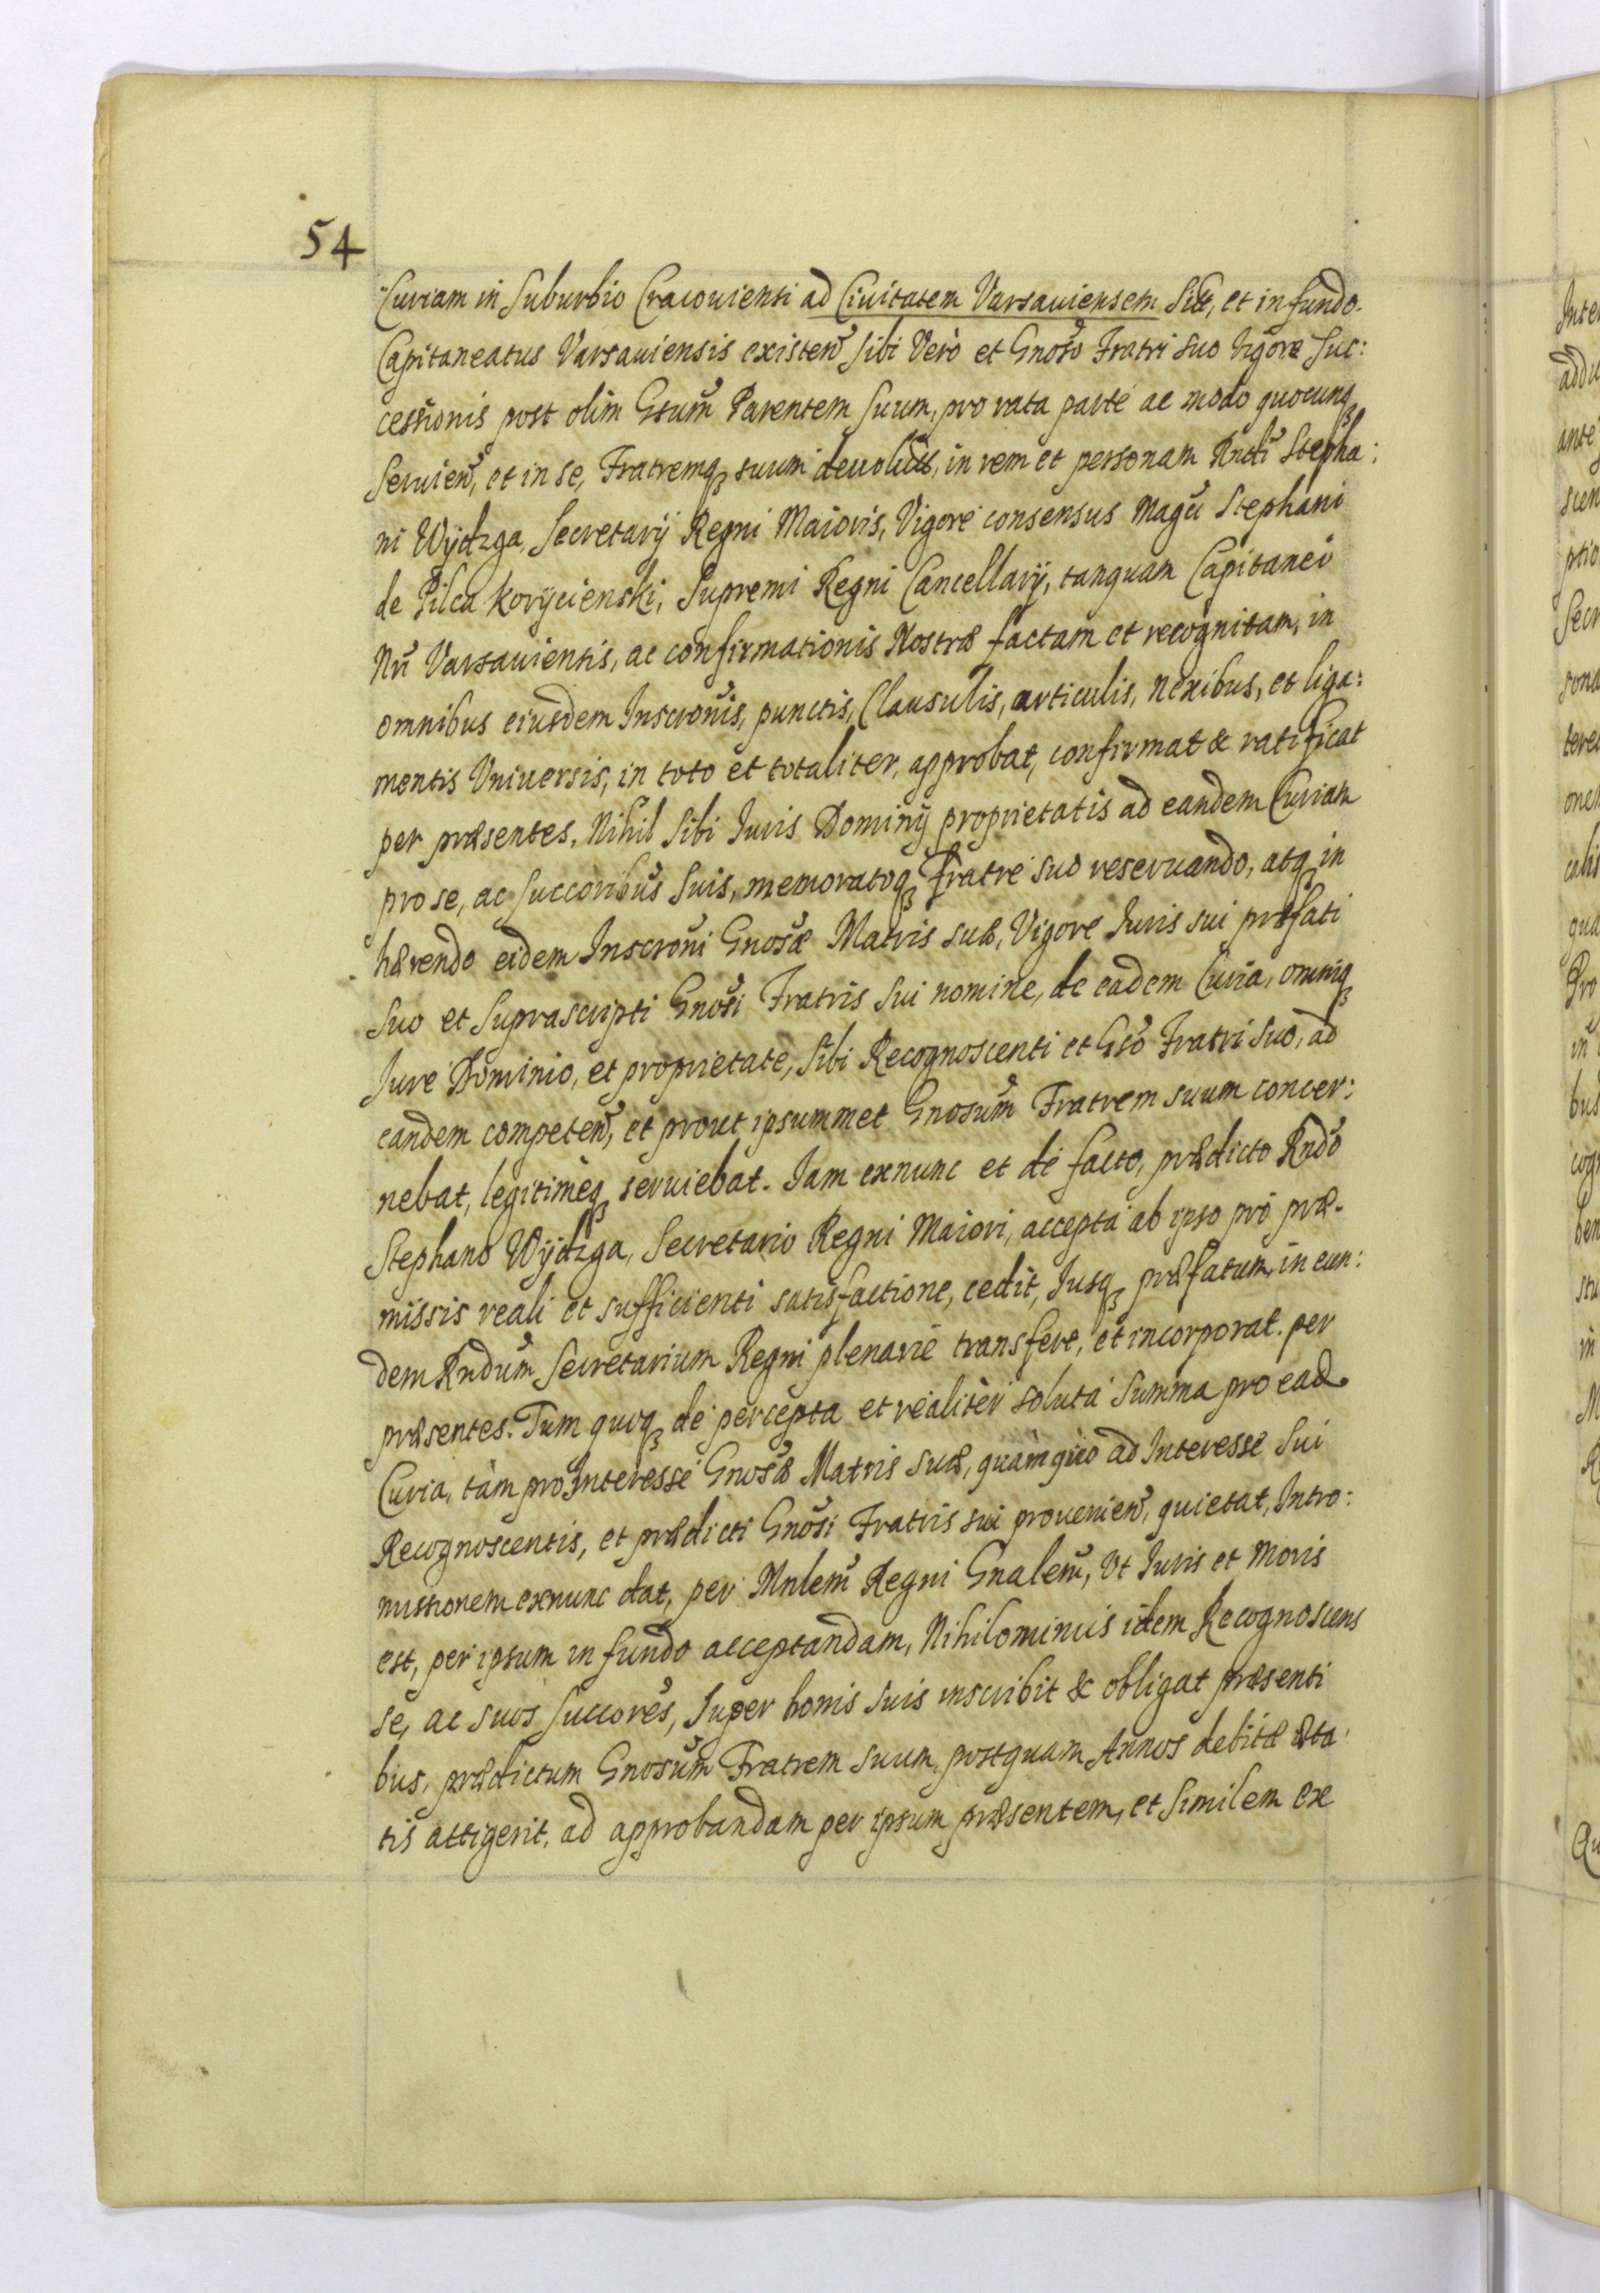 54
Curiam in Suburbio Cracouiensi ad Ciuitatem Varsauiensem Sit, et in fundo
Capitaneatus Varsauiensis existen̄ sibi Verò et Gnoso Fratri suo Vigore Suc:
cessionis post olim Gsum̄ Parentem Suum, pro rata parte ac modo quocunqꝫ
Seruien̄, et in se, Fratremqꝫ suum deuolut, in rem et personam Rndi Stepha:
ni Wÿdzga, Secretarÿ Regni Maioris, Vigore consensus Magci Stephani
de Pilca Korÿcienski, Supremi Regni Cancellarÿ, tanquam Capitanei
Nri Varsauiensis, ac confirmationis Nostræ factam et recognitam, in
omnibus eiusdem Inscronis, punctis, Clausulis, articulis, nexibus, et liga:
mentis Vniuersis, in toto et totaliter, approbat, confirmat & ratificat
per præsentes. Nihil Sibi Iuris Dominÿ proprietatis ad eandem Curiam
pro se, ac Succoribus Suis, memoratoqꝫ Fratre suo reseruando, atqꝫ in
hærendo eidem Inscroni Gnosæ Matris suæ, Vigore Iuris sui præfati
suo et Suprascripti Gnosi Fratris Sui nomine, de eadem Curia, omniqꝫ
Iure Dominio, et proprietate, Sibi Recognoscenti et Gso Fratri Suo, ad
eandem competen̄, et prout ipsummet Gnosum Fratrem suum concer:
nebat, legitimèqꝫ seruiebat. Iam exnunc et de facto, prædicto Rndo
Stephano Wÿdzga, Secretario Regni Maiori, accepta ab ipso pro præ-
missis reali et sufficienti satisfactione, cedit, Iusqꝫ præfatum, in eun:
dem Rndum Secretarium Regni plenariè transfert, et incorporat. per
præsentes. Tum quoqꝫ de percepta et realiter soluta Summa pro ead
Curia, tàm pro Interesse Gnosæ Matris suæ, quàm quo ad Interesse Sui
Recognoscentis, et prædicti Gnosi Fratris sui prouenien̄, quietat, Intro:
missionem exnunc dat, per Mnlem Regni Gnalem, Vt Iuris et moris
est, per ipsum in fundo acceptandam, Nihilominus idem Recognoscens
se, ac suos Succores, Super bonis suis inscribit & obligat præsenti
bus, prædictum Gnosum Fratrem suum, postquam Annos debitæ æta:
tis attigerit, ad approbandam per ipsum præsentem, et Similem ex